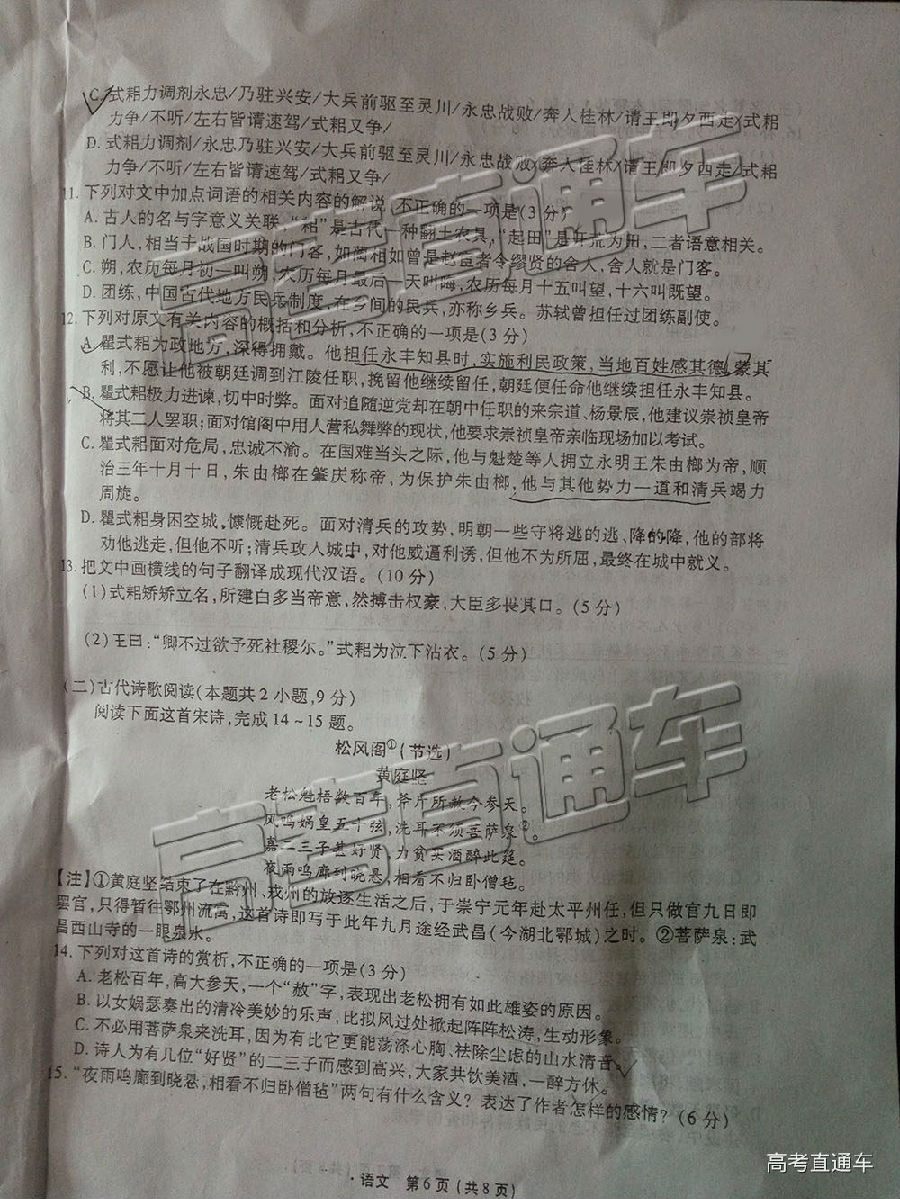 C. 式耜力调剂永忠/乃驻兴安/大兵前驱至灵川/永忠战败/奔入桂林/请王即夕西走/式耜
力争/不听/左右皆请速驾/式耜又争/
D. 式耜力调剂/永忠乃驻兴安/大兵前驱至灵川/永忠战败/奔入桂林/请王即夕西走/式耜
力争/不听/左右皆请速驾/式耜又争/
11. 下列对文中加点词语的相关内容的解说,不正确的一项是(3分)
A. 古人的名与字意义关联,“耜”是古代一种翻土农具,“起田”是开荒为田,二者语意相关。
B. 门人,相当于战国时期的门客,如蔺相如曾是赵宦者令缪贤的舍人,舍人就是门客。
C. 朔,农历每月初一叫朔,农历每月最后一天叫晦,农历每月十五叫望,十六叫既望。
D. 团练,中国古代地方民兵制度,在乡间的民兵,亦称乡兵。苏轼曾担任过团练副使。
12. 下列对原文有关内容的概括和分析,不正确的一项是(3分)
A. 瞿式耜为政地方,深得拥戴。他担任永丰知县时,实施利民政策,当地百姓感其德,蒙其
利,不愿让他被朝廷调到江陵任职,挽留他继续留任,朝廷便任命他继续担任永丰知县。
B. 瞿式耜极力进谏,切中时弊。面对追随逆党却在朝中任职的来宗道、杨景辰,他建议崇祯皇帝
将其二人罢职;面对馆阁中用人营私舞弊的现状,他要求崇祯皇帝亲临现场加以考试。
C. 瞿式耜面对危局,忠诚不渝。在国难当头之际,他与魁楚等人拥立永明王朱由榔为帝,顺
治三年十月十日,朱由榔在肇庆称帝,为保护朱由榔,他与其他势力一道和清兵竭力
周旋。
D. 瞿式耜身困空城,慷慨赴死。面对清兵的攻势,明朝一些守将逃的逃,降的降,他的部将
劝他逃走,但他不听;清兵攻入城中,对他威逼利诱,但他不为所屈,最终在城中就义。
13. 把文中画横线的句子翻译成现代汉语。(10分)
(1)式耜矫矫立名,所建白多当帝意,然搏击权豪,大臣多畏其口。(5分)
(2)王曰:“卿不过欲予死社稷尔。”式耜为泣下沾衣。(5分)
(二)古代诗歌阅读(本题共2小题,9分)
阅读下面这首宋诗,完成14~15题。
松风阁①(节选)
黄庭坚
老松魁梧数百年,斧斤所赦今参天。
风鸣娲皇五十弦,洗耳不须菩萨泉②。
嘉二三子甚好贤,力贫买酒醉此筵。
夜雨鸣廊到晓悬,相看不归卧僧毡。
【注】①黄庭坚结束了在黔州、戎州的放逐生活之后,于崇宁元年赴太平州任,但只做官九日即
罢官,只得暂往鄂州流寓,这首诗即写于此年九月途经武昌(今湖北鄂城)之时。②菩萨泉:武
昌西山寺的一眼泉水。
14. 下列对这首诗的赏析,不正确的一项是(3分)
A. 老松百年,高大参天,一个“赦”字,表现出老松拥有如此雄姿的原因。
B. 以女娲瑟奏出的清冷美妙的乐声,比拟风过处掀起阵阵松涛,生动形象。
C. 不必用菩萨泉来洗耳,因为有比它更能荡涤心胸、祛除尘虑的山水清音。
D. 诗人为有几位“好贤”的二三子而感到高兴,大家共饮美酒,一醉方休。
15. “夜雨鸣廊到晓悬,相看不归卧僧毡”两句有什么含义?表达了作者怎样的感情?(6分)
·语文 第6页(共8页)
高考直通车
高考直通车
高考直通车